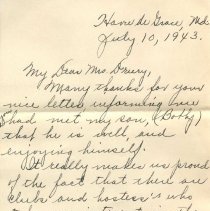 Havre de Grace, Md.
July 10, 1943.
My Dear Mrs. Drury,
Many thanks for your
nice letter informing me
had met my son, (Bobby)
that he is well, and
enjoying himself.
It really makes us proud
of the fact that there are
clubs and hostess's who